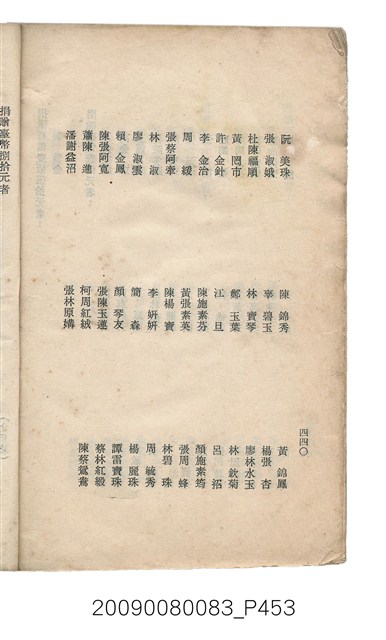 阮美珠
張淑娥
杜陳福順
黃罔市
許金針
李金治
周緩
張蔡阿牽
林淑
廖淑雲
賴金鳳
陳張阿寬
蕭陳進
潘謝益沼
陳錦秀
辜碧玉
林寶琴
鄭玉葉
江旦
陳施素芬
黃張素英
陳楊寶
李妍妍
簡森
顏琴友
張陳玉蓮
柯周紅絨
張林原嬌
黃錦鳳
楊張杏
廖林水玉
林欽菊
呂招
顏施素筠
張周蜂
林碧珠
周毓秀
楊麗珠
譚雷寶珠
蔡林紅緞
陳蔡鴛鴦
四四〇
捐贈臺幣捌拾元者
20090080083_P453